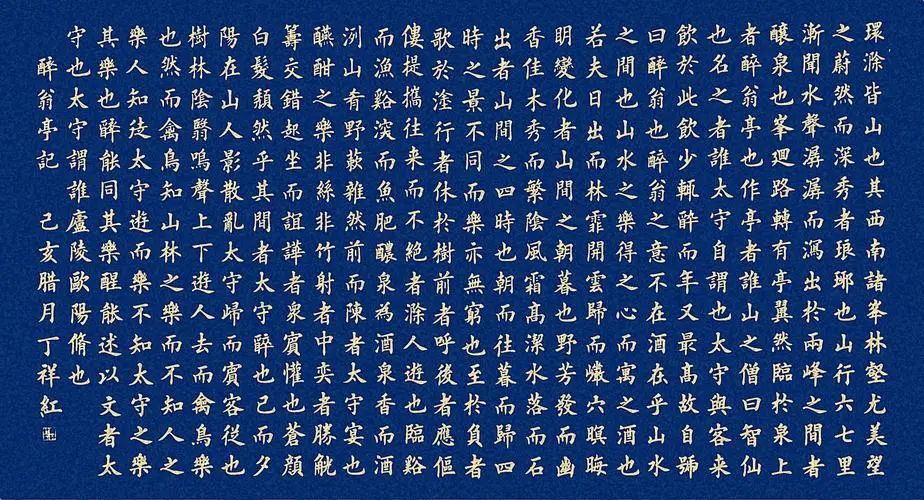 環滁皆山也其西南諸峯林壑尤美望
之蔚然而深秀者琅琊也山行六七里
漸聞水聲潺潺而瀉出於兩峰之間者
釀泉也峯迴路轉有亭翼然臨於泉上
者醉翁亭也作亭者誰山之僧曰智仙
也名之者誰太守自謂也太守與客來
飲於此飲少輒醉而年又最高故自號
曰醉翁也醉翁之意不在酒在乎山水
之間也山水之樂得之心而寓之酒也
若夫日出而林霏開雲歸而巖穴暝晦
明變化者山間之朝暮也野芳發而幽
香佳木秀而繁陰風霜高潔水落而石
出者山間之四時也朝而往暮而歸四
時之景不同而樂亦無窮也至於負者
歌於塗行者休於樹前者呼後者應傴
僂提攜往來而不絕者滁人遊也臨谿
而漁谿深而魚肥釀泉為酒泉香而酒
洌山肴野蔌雜然前而陳者太守宴也
醼酣之樂非絲非竹射者中奕者勝觥
籌交錯起坐而諠譁者衆賓懽也蒼顏
白髮頹然乎其間者太守醉也已而夕
陽在山人影散亂太守歸而賓客從也
樹林陰翳鳴聲上下遊人去而禽鳥樂
也然而禽鳥知山林之樂而不知人之
樂人知從太守遊而樂不知太守之樂
其樂也醉能同其樂醒能述以文者太
守也太守謂誰廬陵歐陽脩也
醉翁亭記 己亥腊月丁祥紅